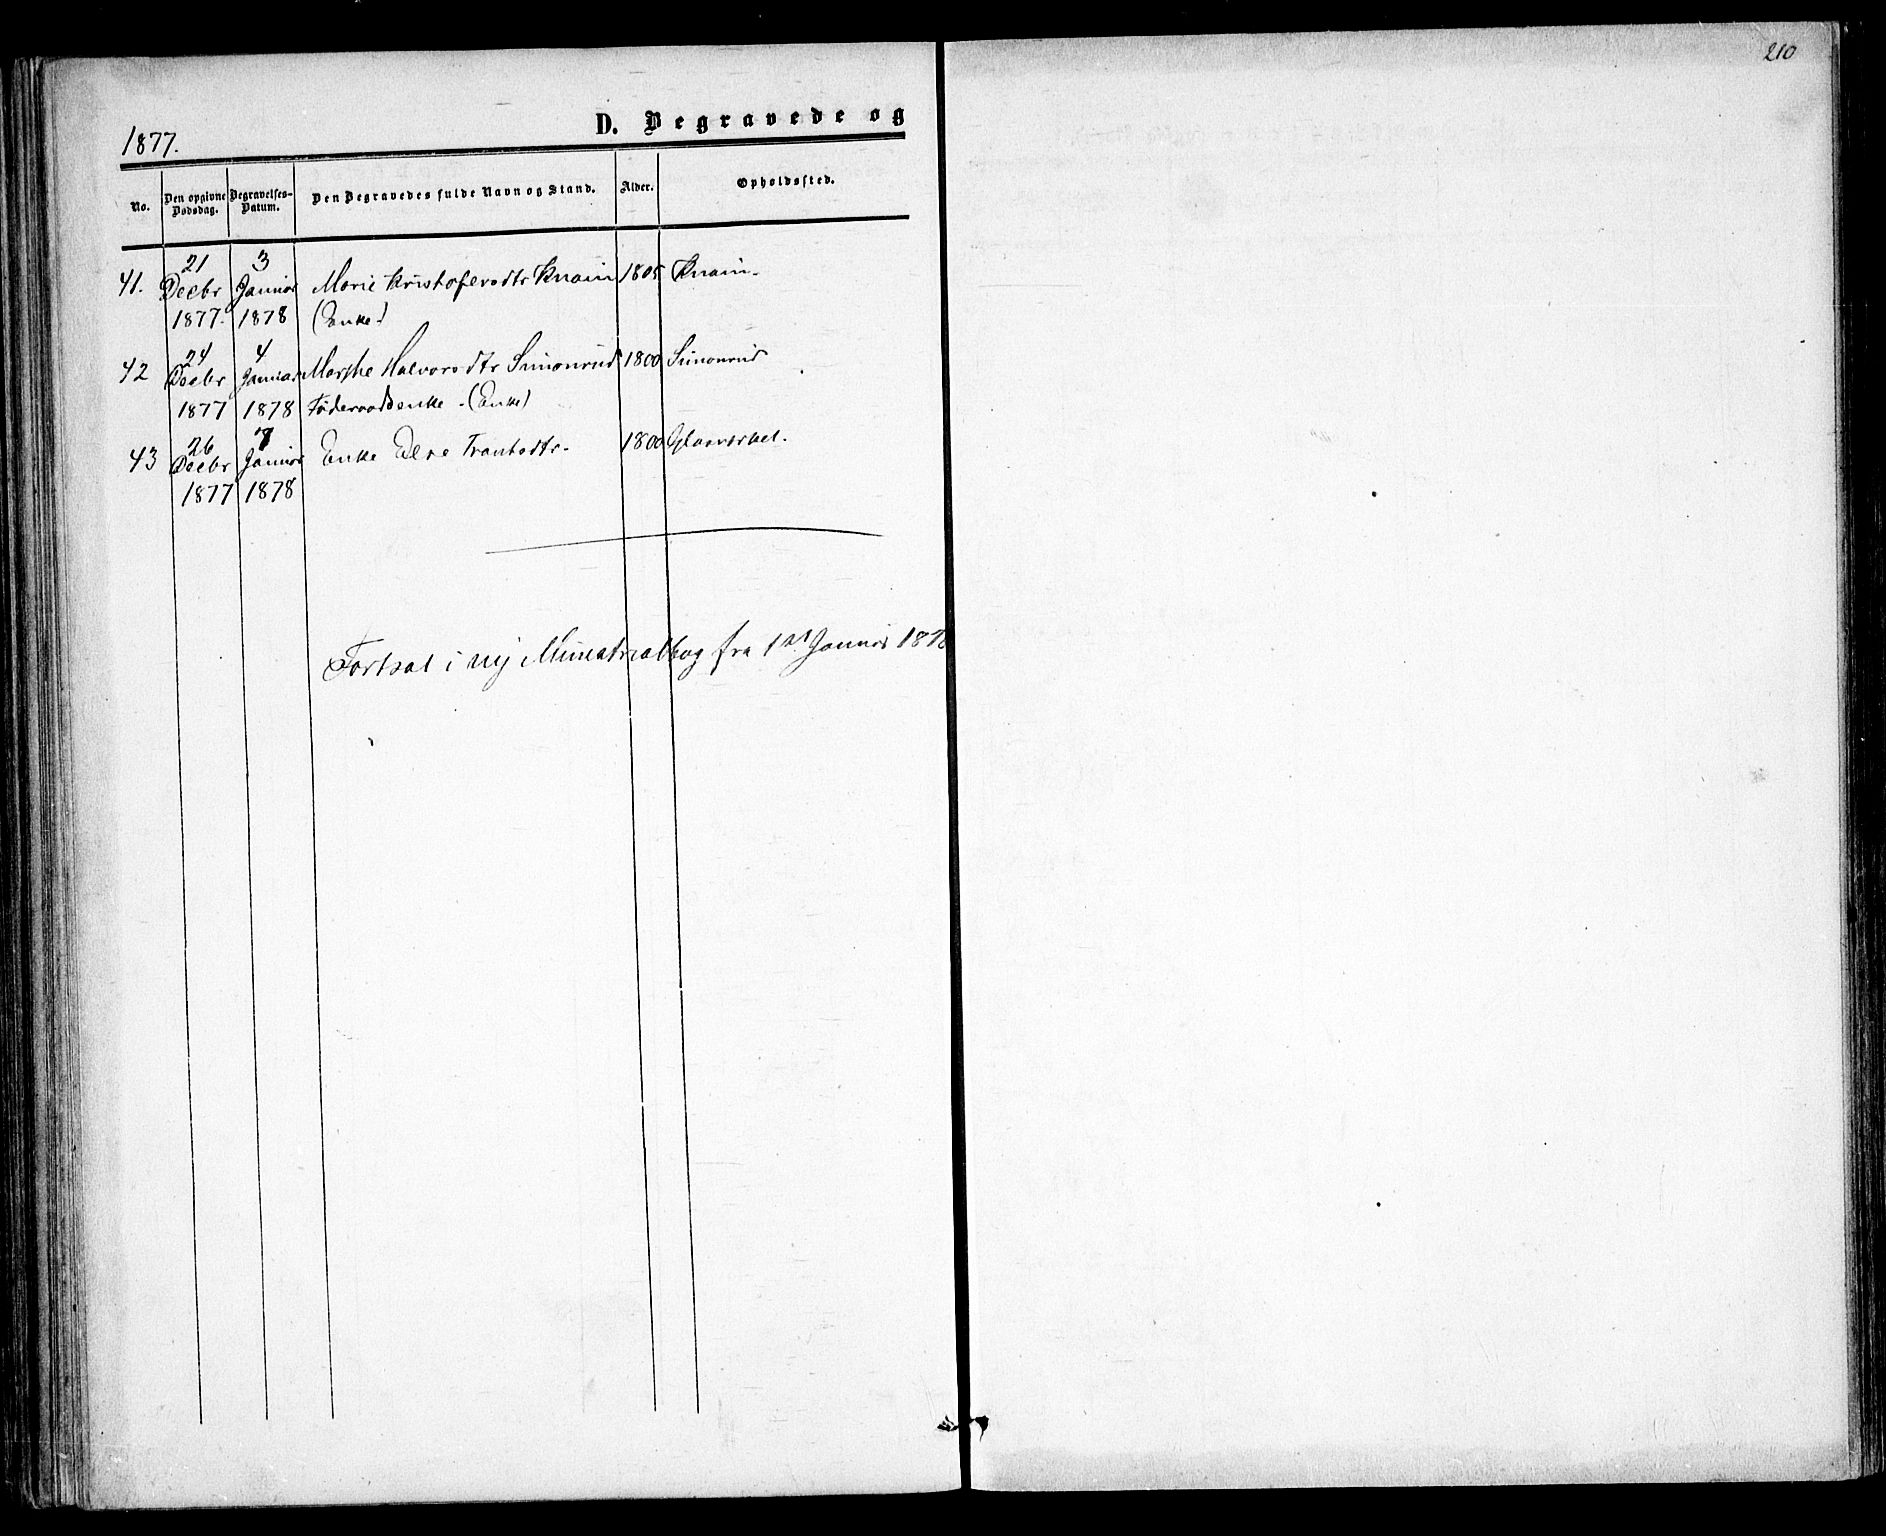 210
D. Begravede og
1877.
No. Den opgivne Dødsdag. Begravelses-Datum. Den Begravedes fulde Navn og Stand. Alder. Opholdssted.
21 3
41. Decbr Januar Marie Kristofersdtr Knain 1805 Knain.
1877. 1878 (Enke)
24 4
42 Decbr Januar Marthe Halvorsdtr Simonrud 1800 Simonrud
1877 1878 Føderaadsenke. (Enke)
26 7
43 Decbr Januar Enke Else 1800 Glasværket.
1877 1878
Fortsat i ny Ministrialbog fra 1ste Januar 1878